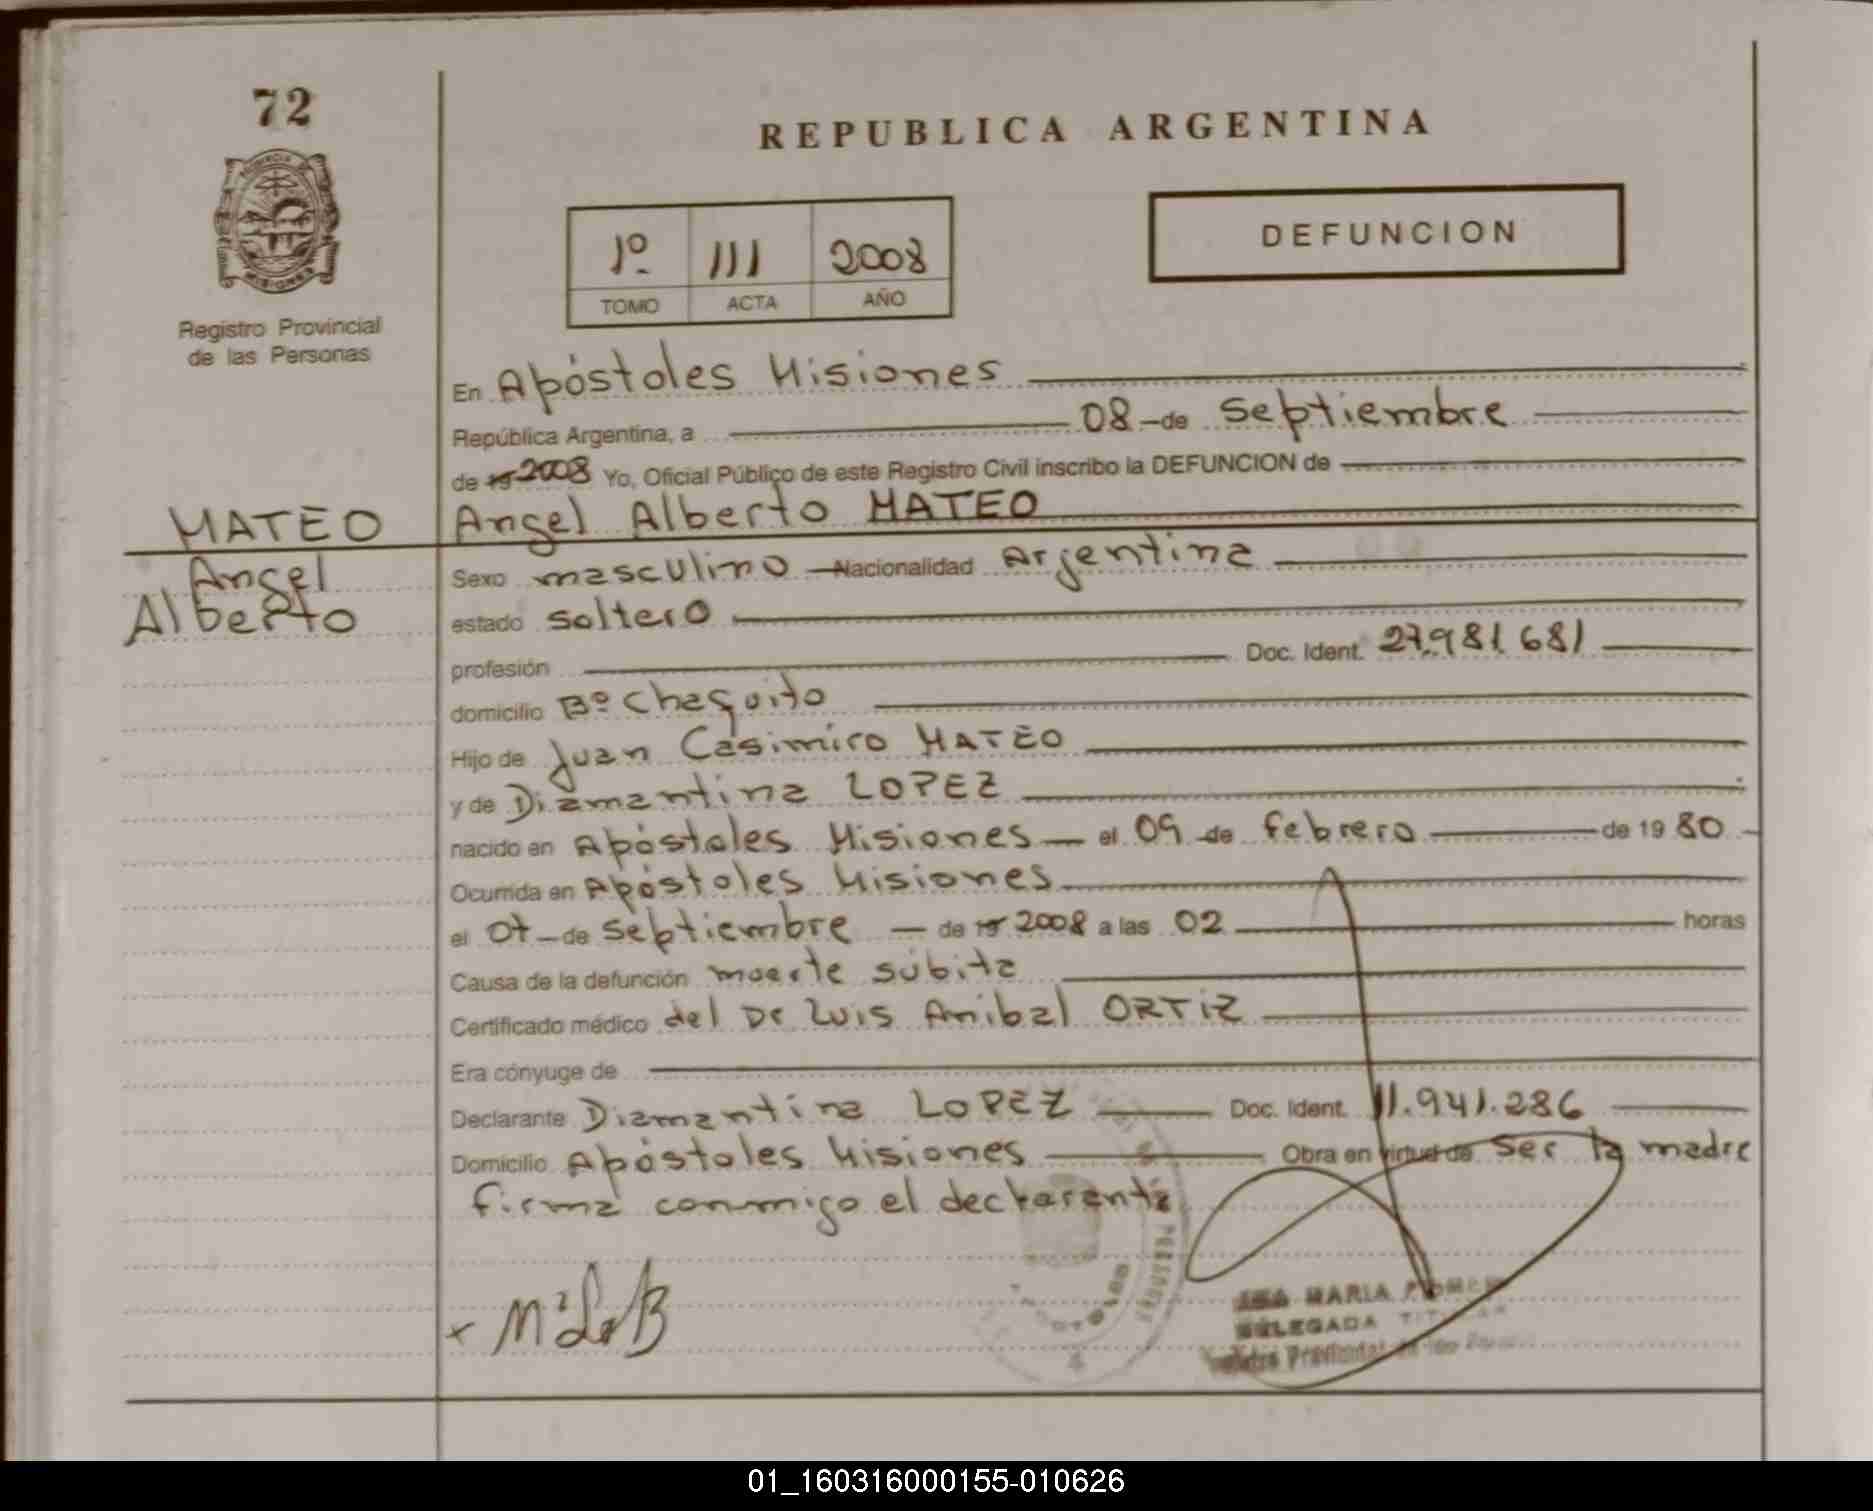 72
REPUBLICA ARGENTINA
1º 111 2008
TOMO ACTA AÑO
DEFUNCION
Registro Provincial
de las Personas
En Apóstoles Misiones
República Argentina, a 08 de Septiembre
de 19 2008 Yo, Oficial Público de este Registro Civil inscribo la DEFUNCION de
MATEO
Angel Alberto MATEO
Angel
Alberto
Sexo masculino Nacionalidad Argentina
estado soltero
profesión Doc. Ident. 27.981.681
domicilio Bº Chaquito
Hijo de Juan Casimiro MATEO
y de Diamantina LOPEZ
nacido en Apóstoles Misiones el 09 de febrero de 1980
Ocurrida en Apóstoles Misiones
el 07 de Septiembre de 19 2008 a las 02 horas
Causa de la defunción muerte súbita
Certificado médico del Dr Luis Anibal ORTIZ
Era cónyuge de
Declarante Diamantina LOPEZ Doc. Ident. 11.941.286
Domicilio Apóstoles Misiones Obra en virtud de ser la madre
firma conmigo el declarante
MARIA
DELEGADA TITULAR
Provincial de las
01_160316000155-010626